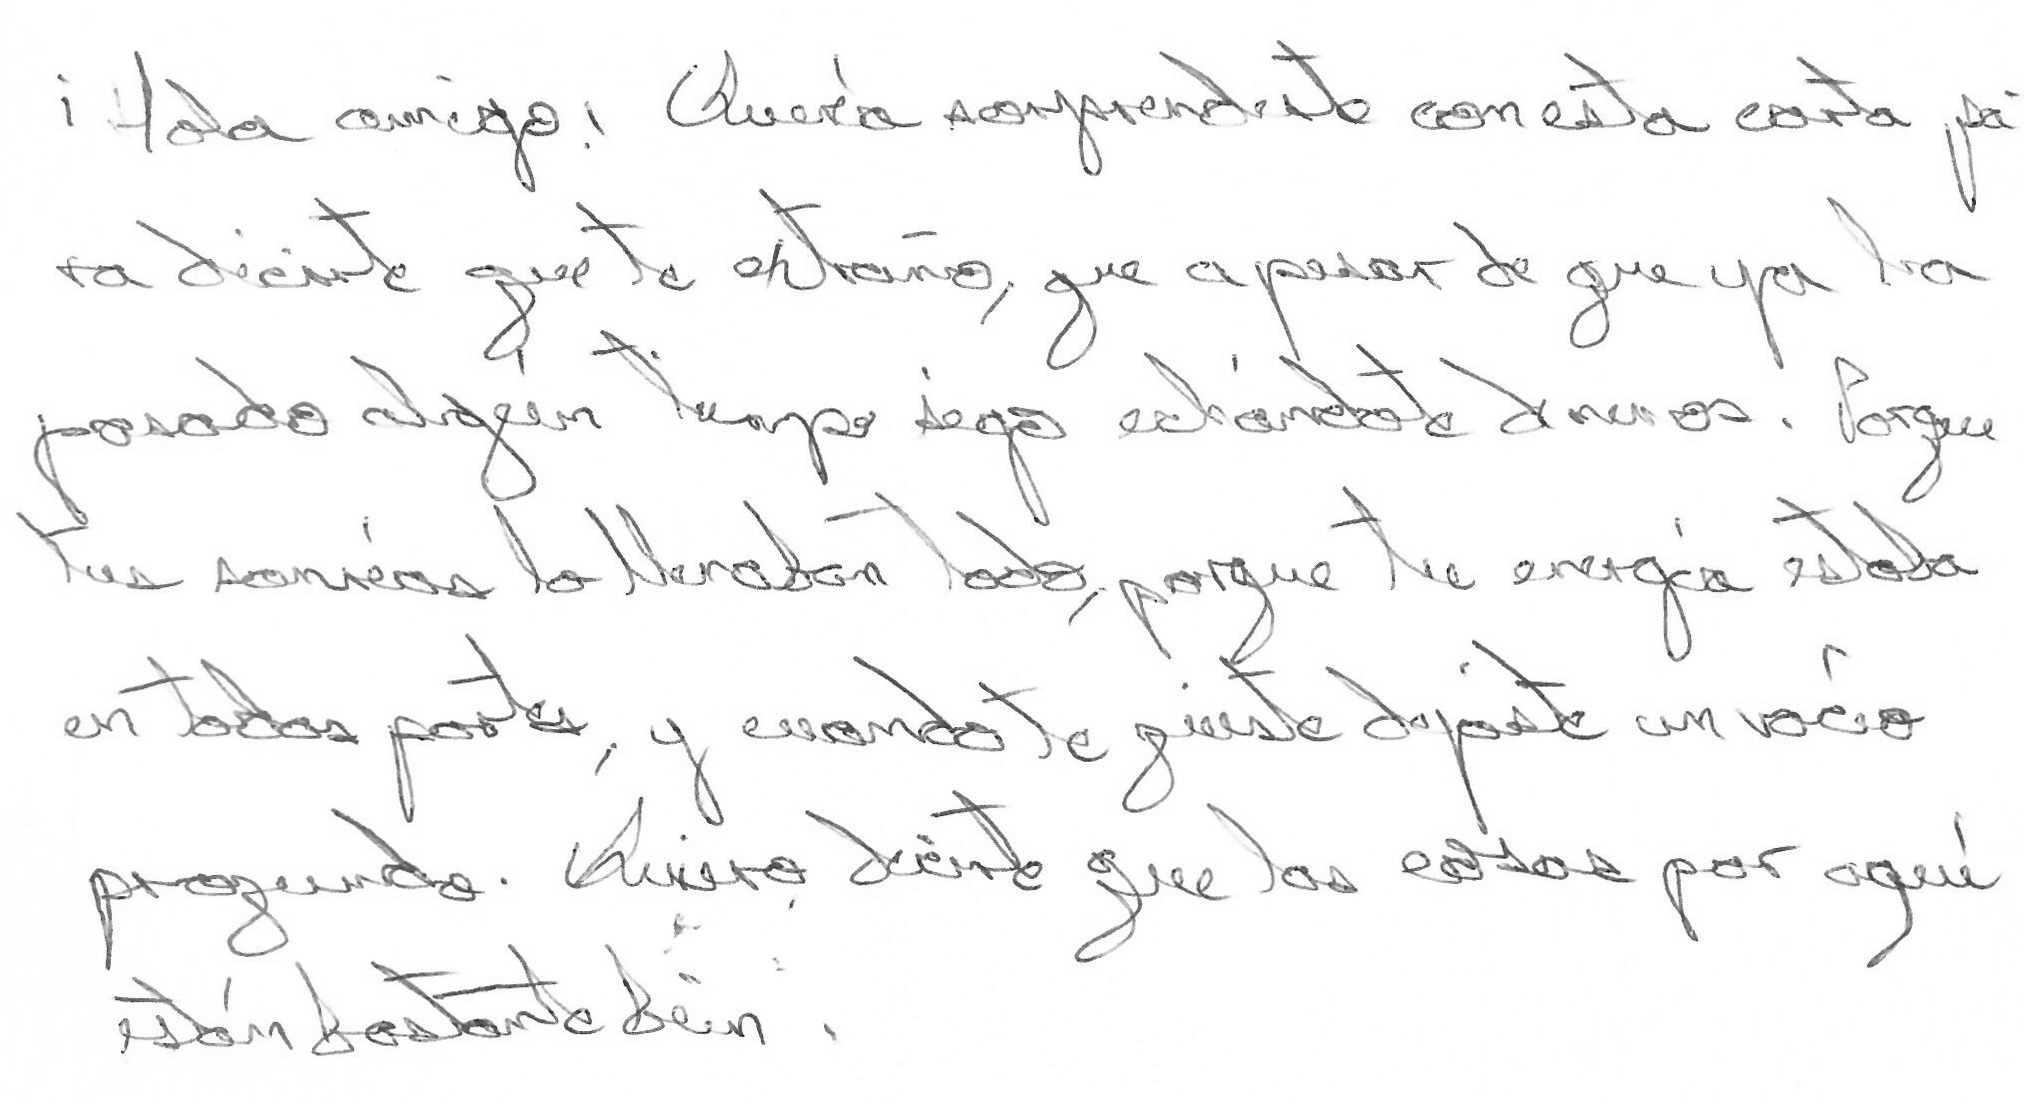 ¡Hola amigo! Quería sorprenderte con esta carta pa
ra decirte que te extraño, que a pesar de que ya ha
pasado algún tiempo sigo echándote de menos. Porque
tus sonrisas lo llenaban todo, porque tu energía estaba
en todas partes, y cuando te fuiste dejaste un vacío
profundo. Quiero decirte que las cosas por aquí
están bastante bien.